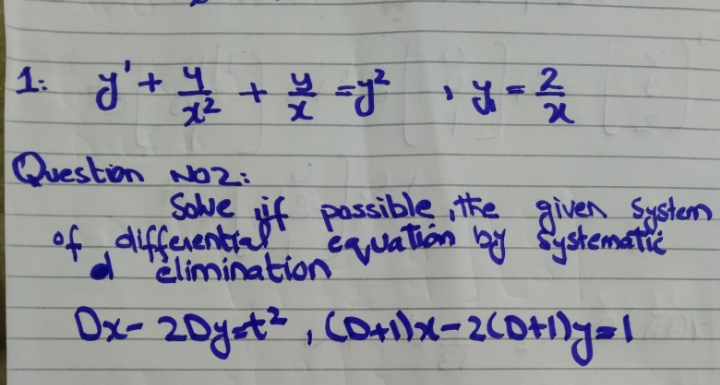 1: y' + y/x² + y/x = y² , y₁ = 2/x
Question No2:
Solve if possible, the given system
of differential equation by systematic
d elimination
Dx - 2Dy = t² , (D+1)x - 2(D+1)y = 1